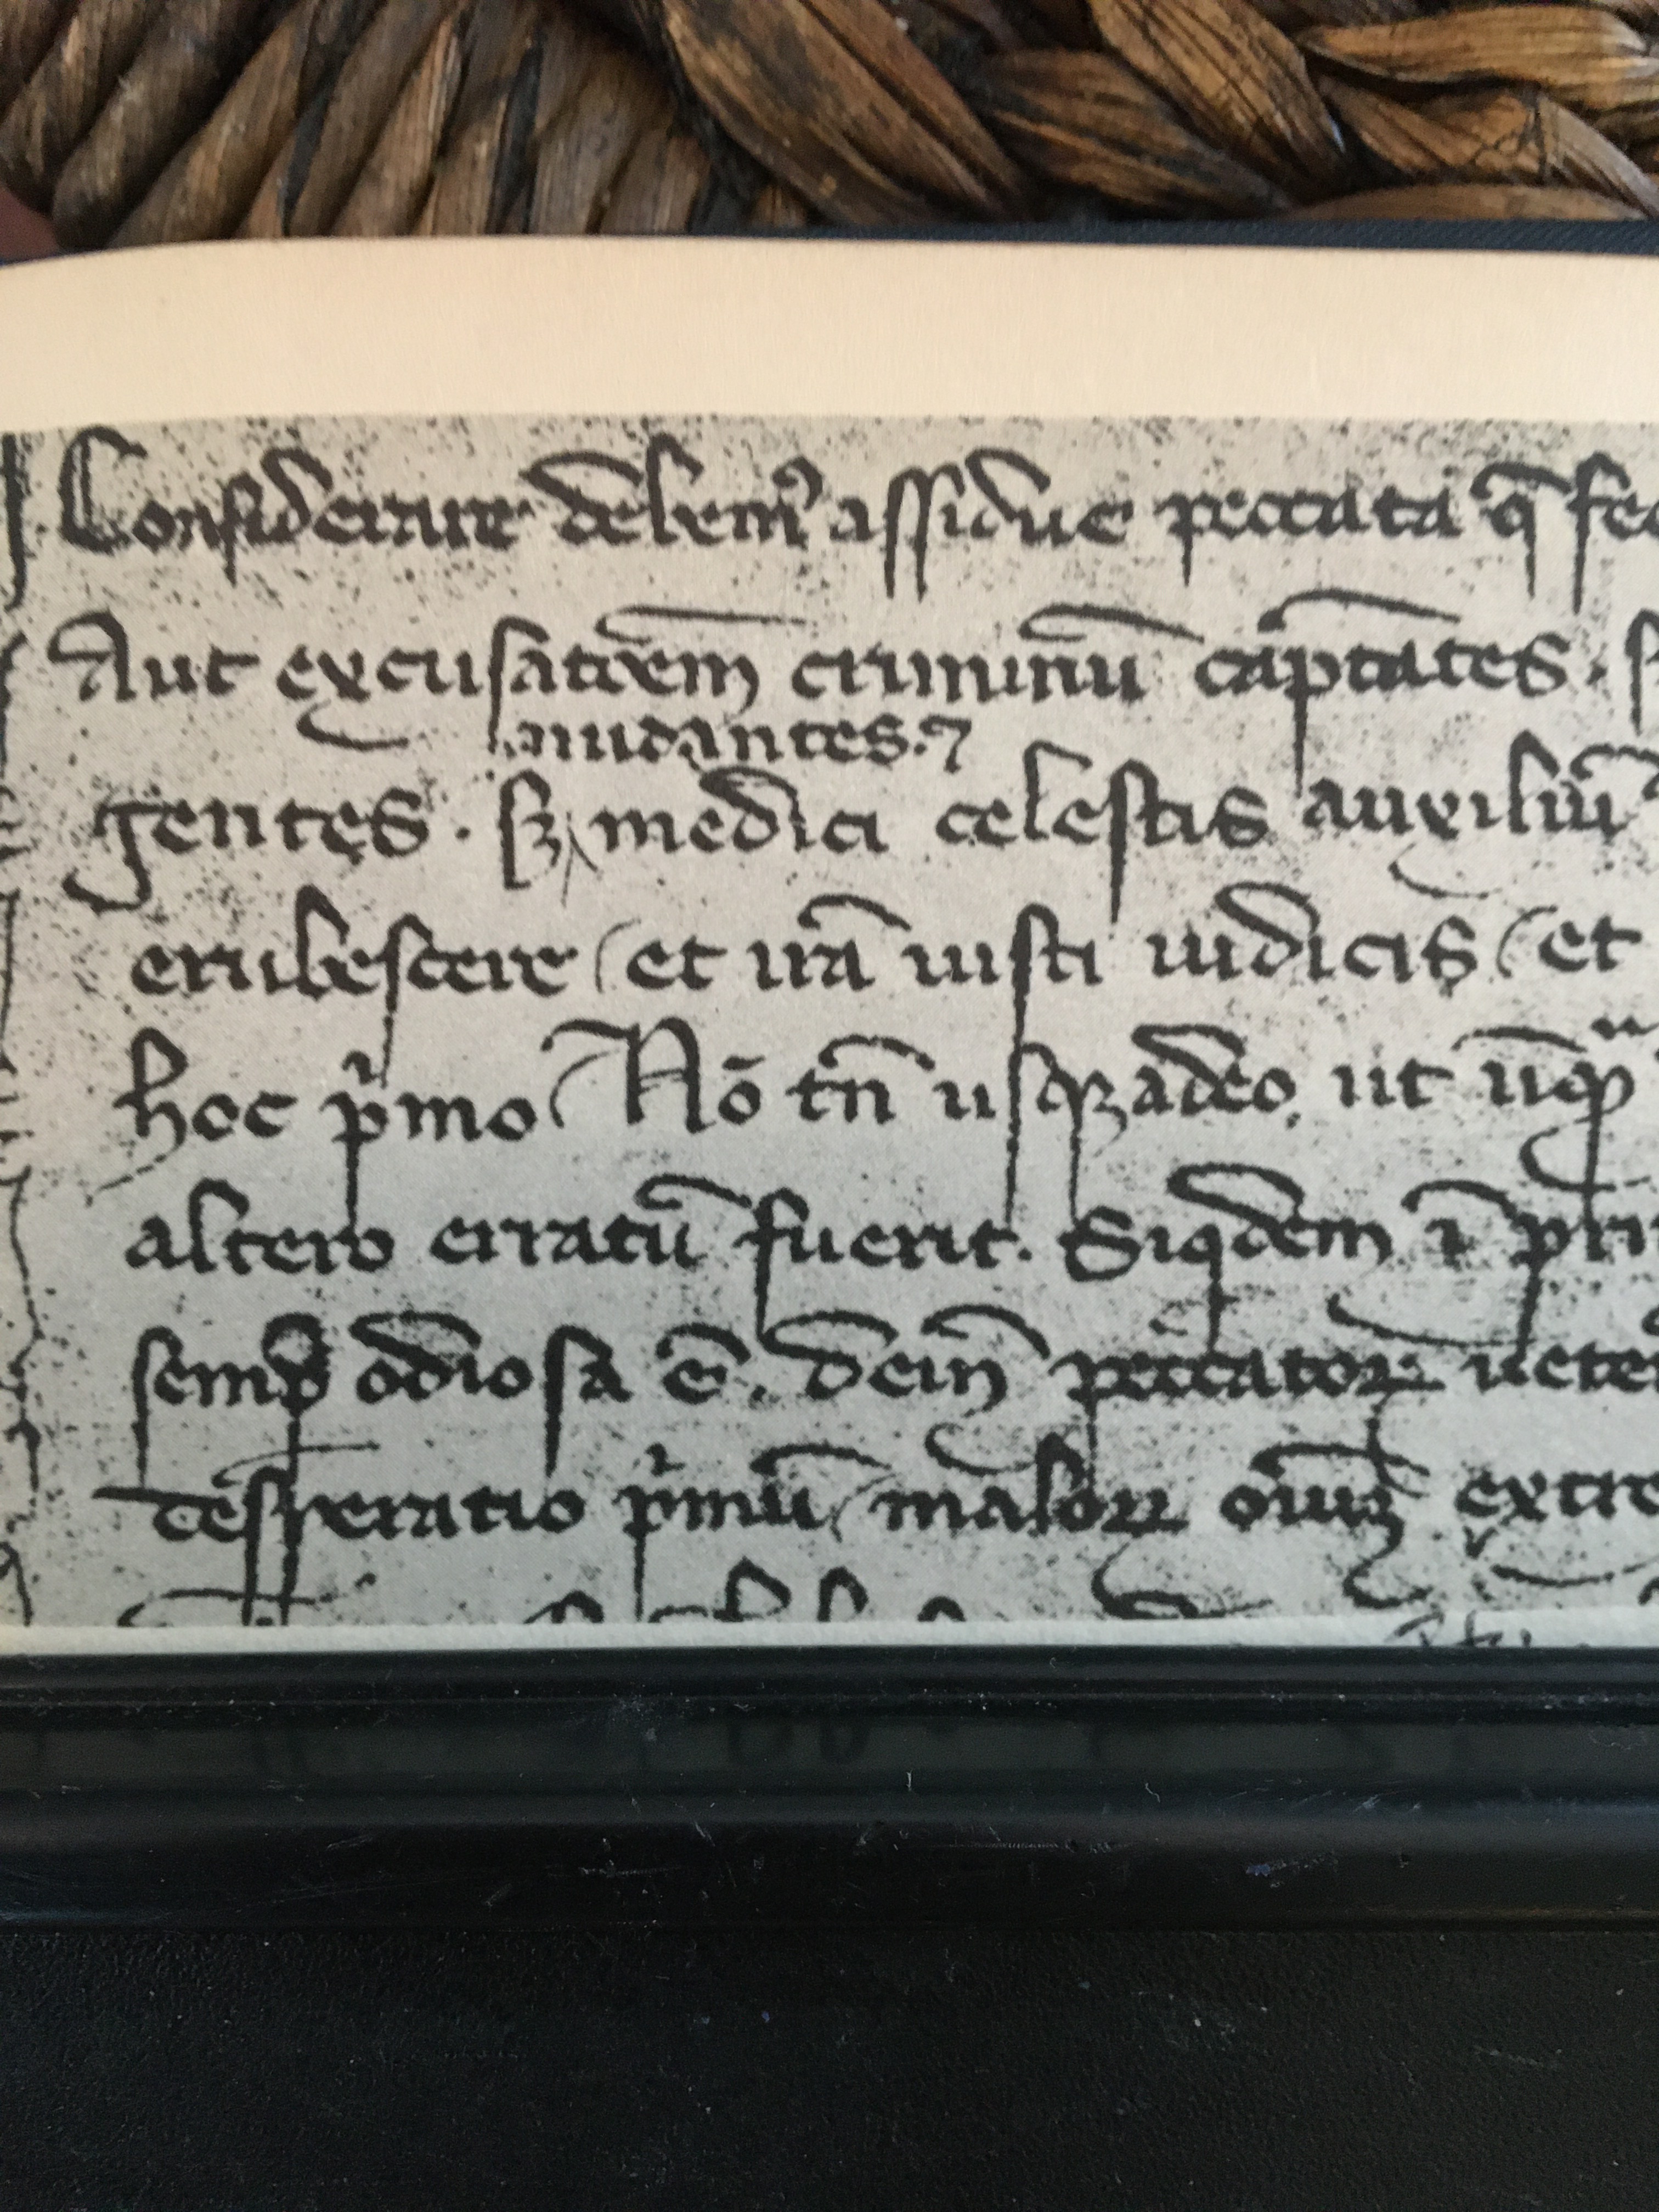 Considerare debem᾽ assidue peccata q̄
Aut excusatōem criminū captātes.
audantes. ⁊
gentes. sꝫ medici celestis auxiliū
erubescere / et irā iusti iudicis / et
hoc p̓mo / Nō tn̄ usqꝫ adeo, ut ūqᷓ
altero erratū fuerit. Siqdem ī
semꝑ odiosa ē. dein peccatoꝝ
desperatio p̓mū / maloꝝ oīuꝫ